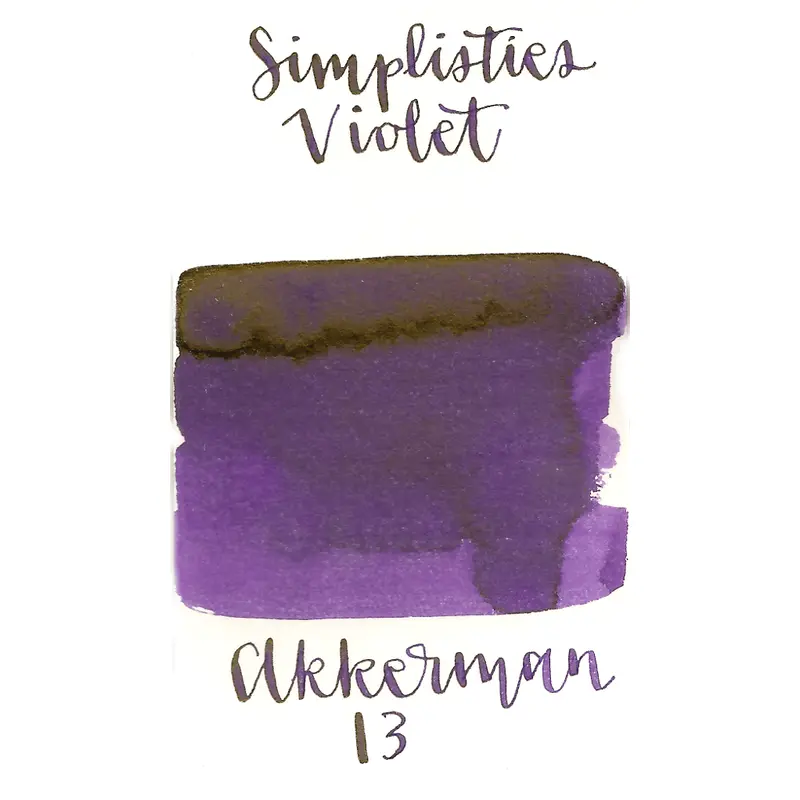 Simplisties
Violet
Akkerman
13